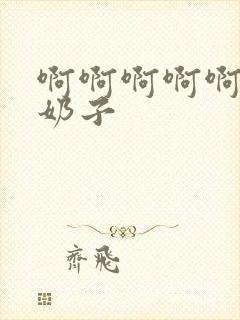 啊啊啊啊啊
奶子
齊飛